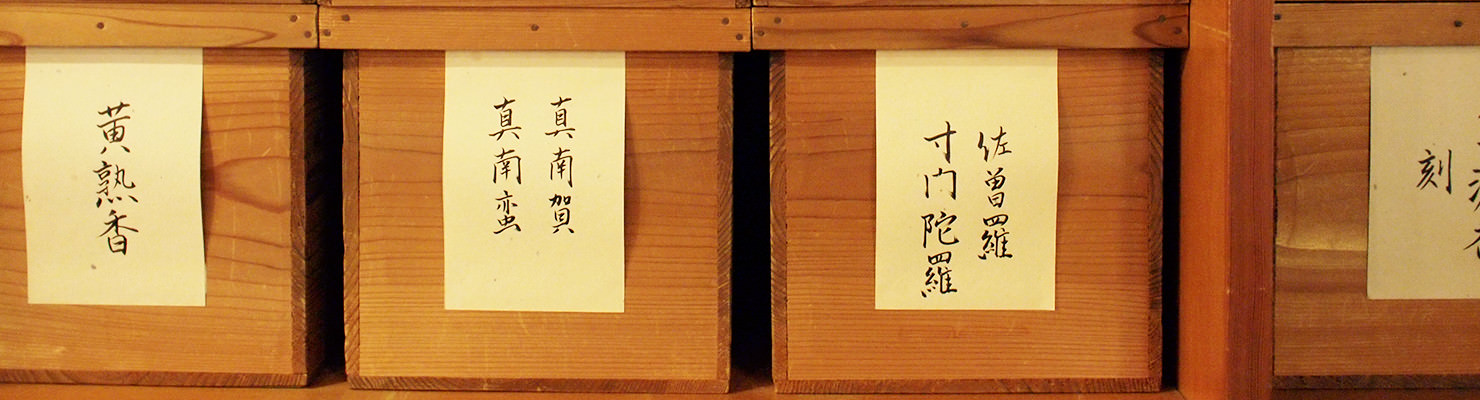 黄熟香
真南賀
真南蛮
佐曽羅
寸門陀羅
刻